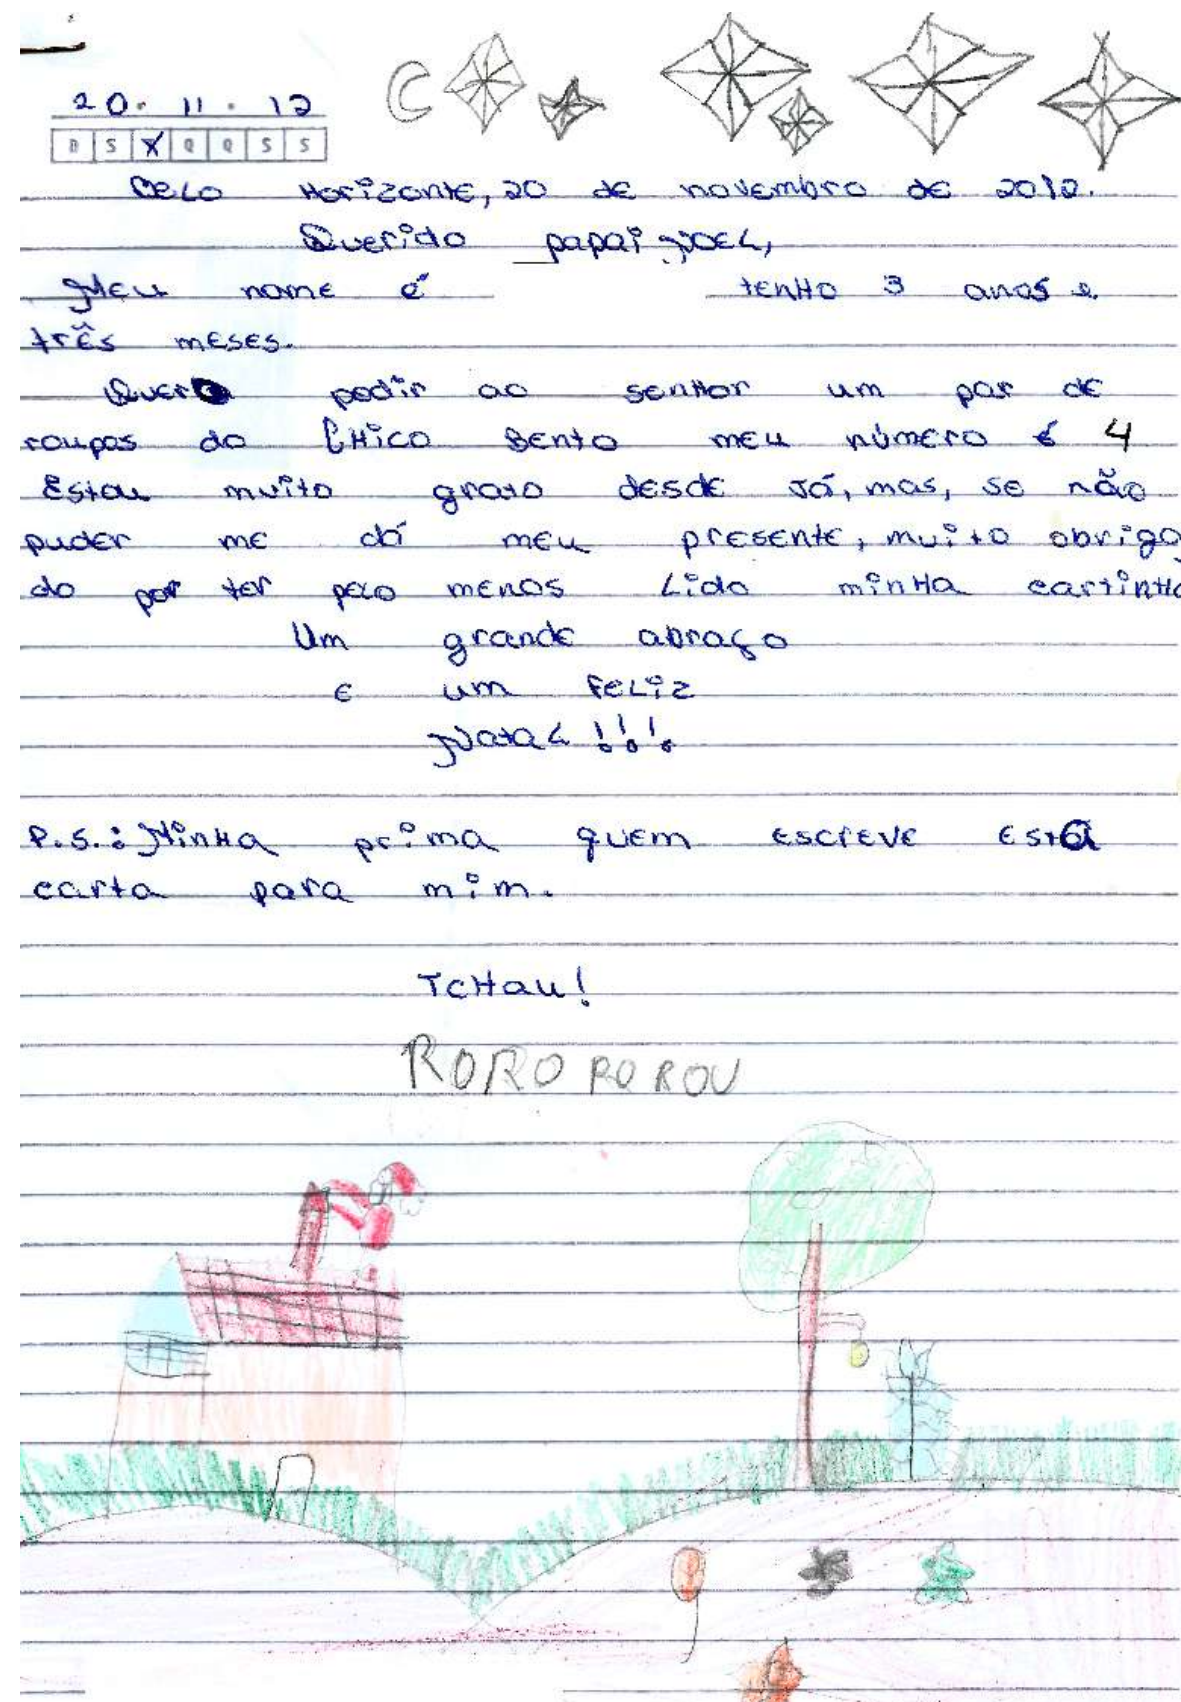 20. 11. 12
D S X Q Q S S
Belo Horizonte, 20 de novembro de 2012.
Querido papai Noel,
Meu nome é tenho 3 anos e
três meses.
Quero pedir ao senhor um par de
roupas do Chico Bento meu número é 4
Estou muito grato desde já, mas, se não
puder me dá meu presente, muito obriga
do por ter pelo menos lido minha cartinha
Um grande abraço
e um feliz
Natal !!!
P.S.: Minha prima quem escreve esta
carta para mim.
Tchau!
RORO ROROU